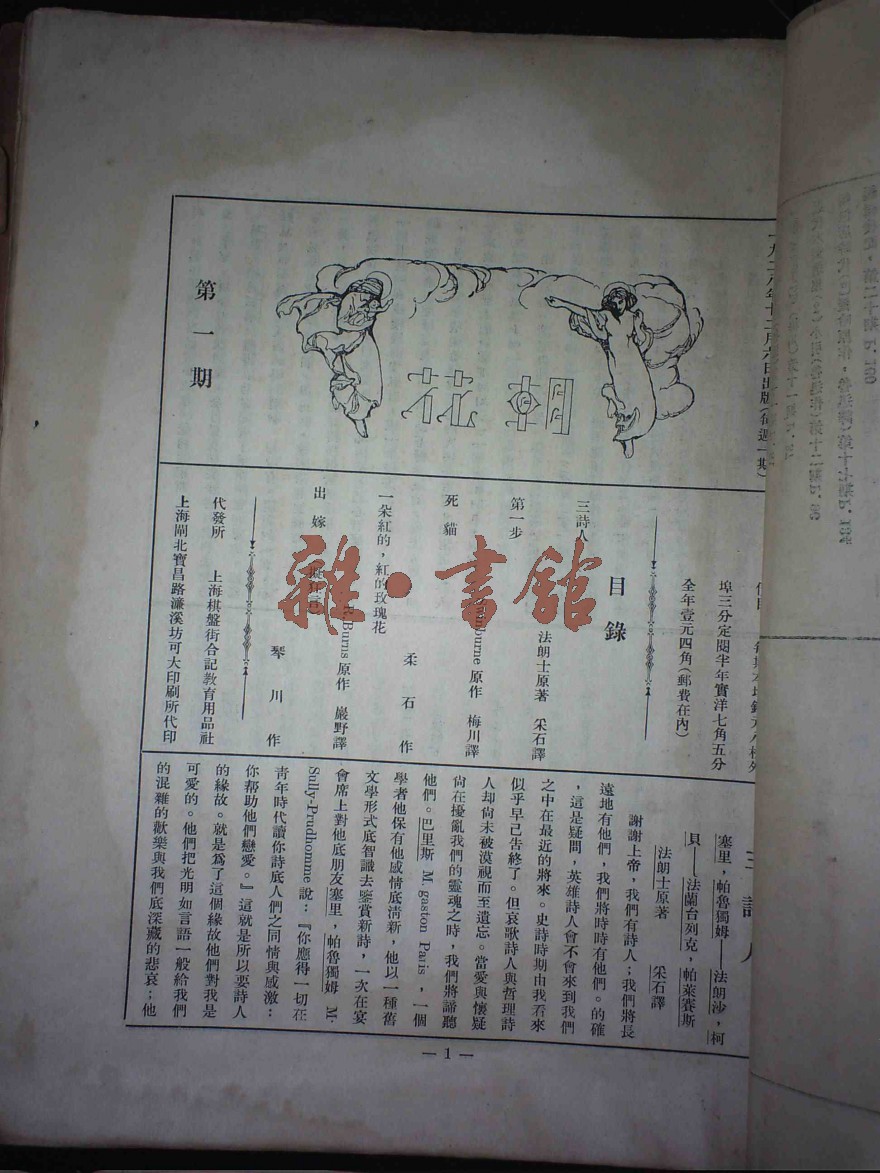 一九二八年十二月六日出版(每週一期)
朝花
第一期
埠三分定閱半年實洋七角五分
全年壹元四角(郵費在內)
目錄
三詩人
法朗士原著 采石譯
第一步
原作 梅川譯
死貓
柔石作
一朵紅的,紅的玫瑰花
R. Burns 原作 巖野譯
出嫁
琴川作
代發所 上海棋盤街合記教育用品社
上海閘北寶昌路濂溪坊可大印刷所代印
三詩人
塞里,帕魯獨姆——法朗沙,柯
貝——法蘭台列克,帕萊賽斯
法朗士原著 采石譯
謝謝上帝,我們有詩人;我們將長
遠地有他們,我們將時時有他們。的確
,這是疑問,英雄詩人會不會來到我們
之中在最近的將來。史詩時期由我看來
似乎早已告終了。但哀歌詩人與哲理詩
人却尙未被漠視而至遺忘。當愛與懷疑
尙在擾亂我們的靈魂之時,我們將諦聽
他們。巴里斯 M. gaston Paris ,一個
學者他保有他感情底淸新,他以一種舊
文學形式底智識去鑒賞新詩,一次在宴
會席上對他底朋友塞里,帕魯獨姆 M.
Sully-Prudhomme 說:『你應得一切在
靑年時代讀你詩底人們之同情與感激:
你帮助他們戀愛。』這就是所以要詩人
的緣故。就是爲了這個緣故他們對我是
可愛的。他們把光明如言語一般給我們
的混雜的歡樂與我們底深藏的悲哀;他
— 1 —
雜·書館